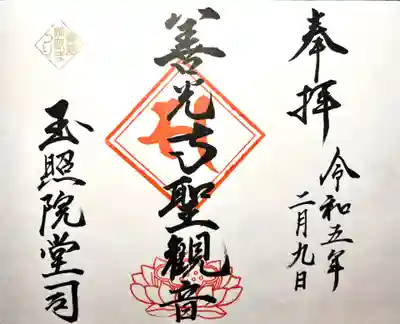 奉拝
令和五年
二月九日
善光寺聖観音
玉照院堂司